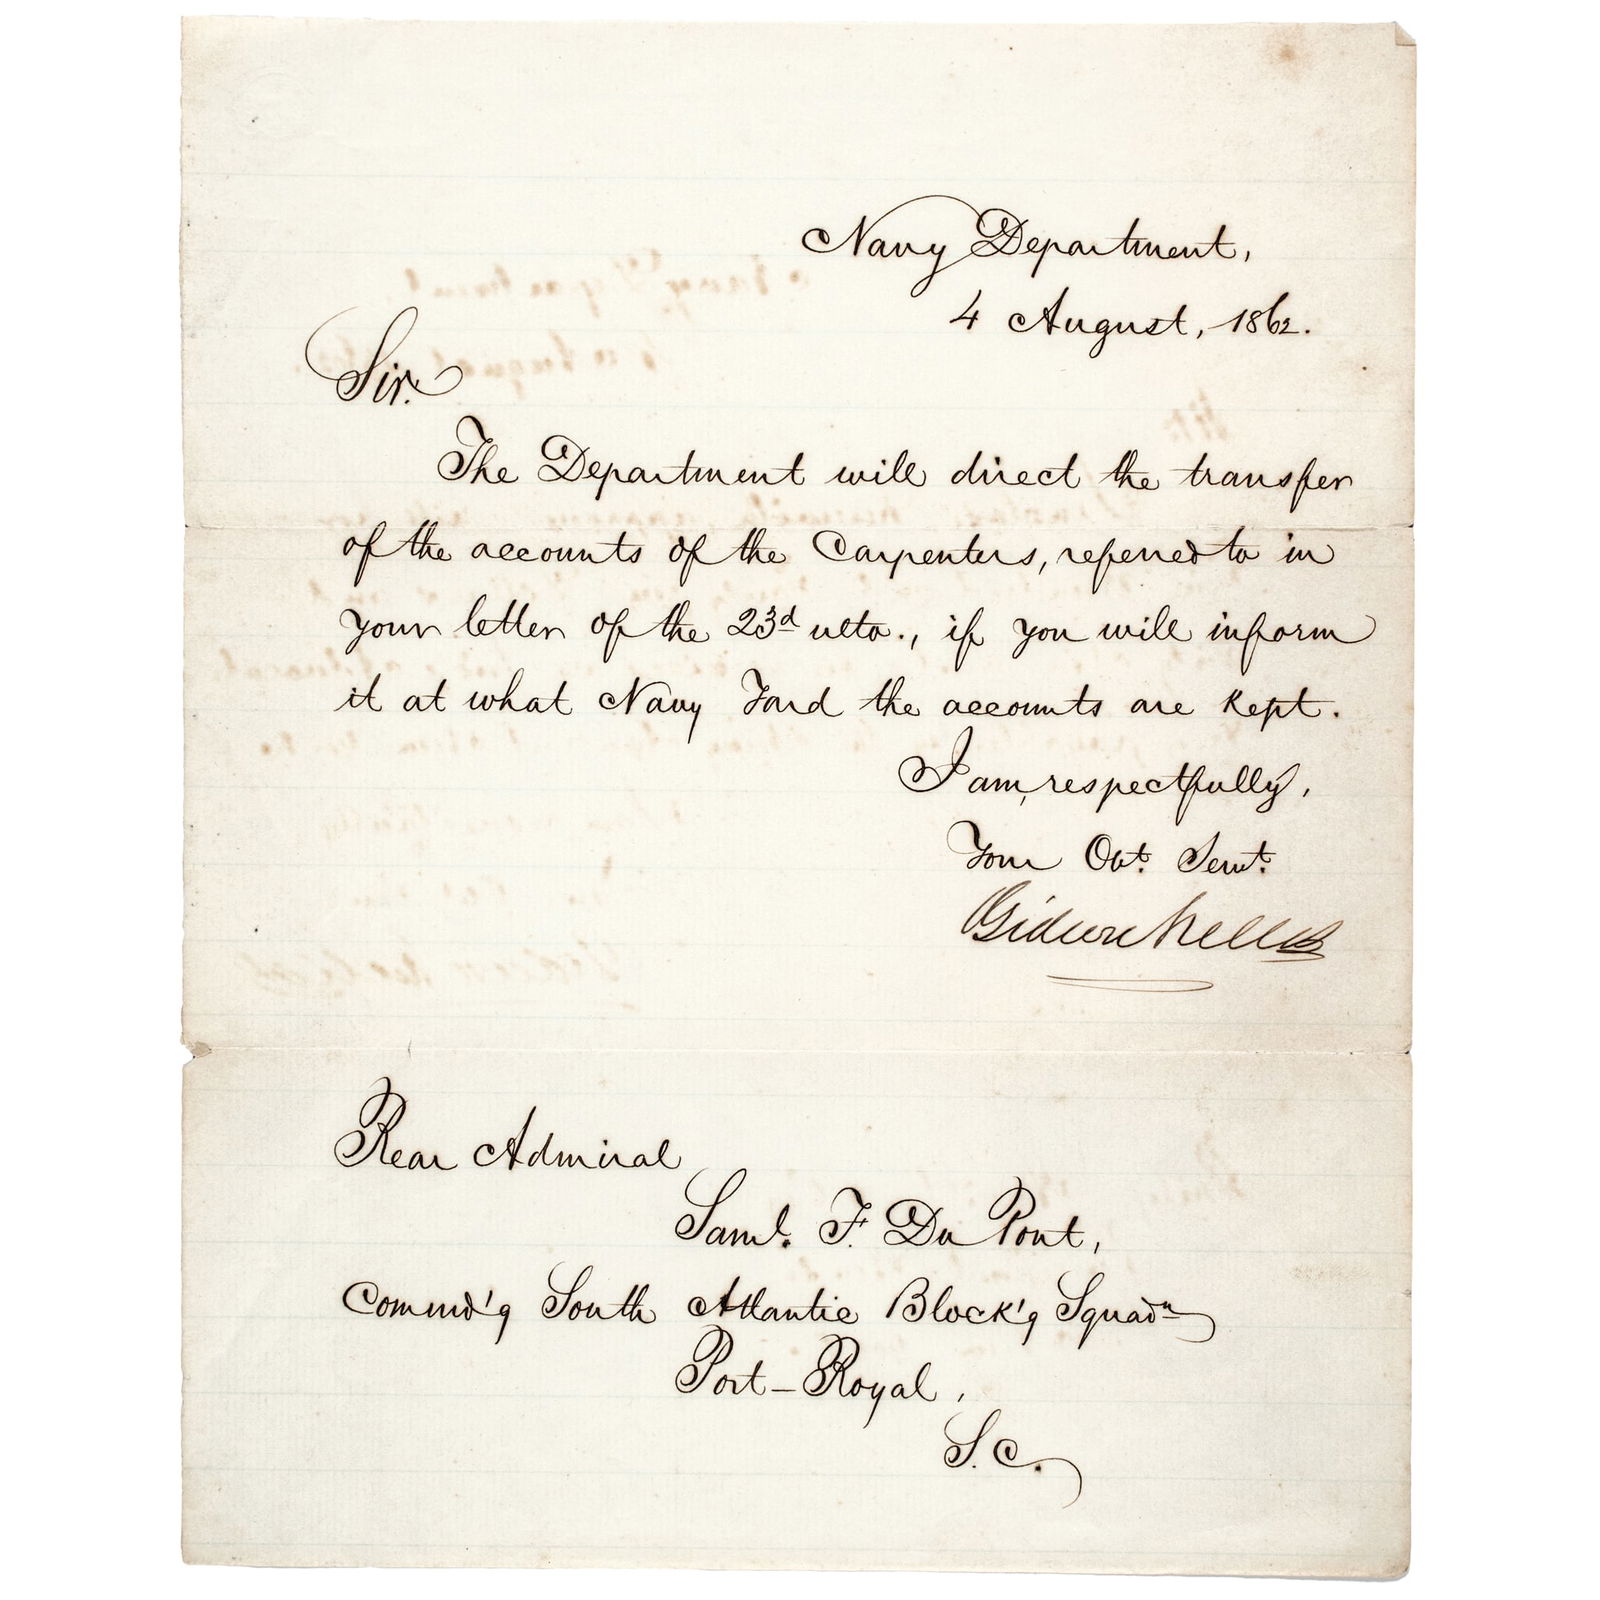 Navy Department,
4 August, 1862.
Sir.
The Department will direct the transfer
of the accounts of the Carpenters, referred to in
your letter of the 23d ulto., if you will inform
it at what Navy Yard the accounts are kept.
I am, respectfully,
Your Obt. Servt.
Gideon Welles
Rear Admiral
Saml. F. Du Pont,
Commd'g South Atlantic Block'g Squadn
Port-Royal,
S.C.